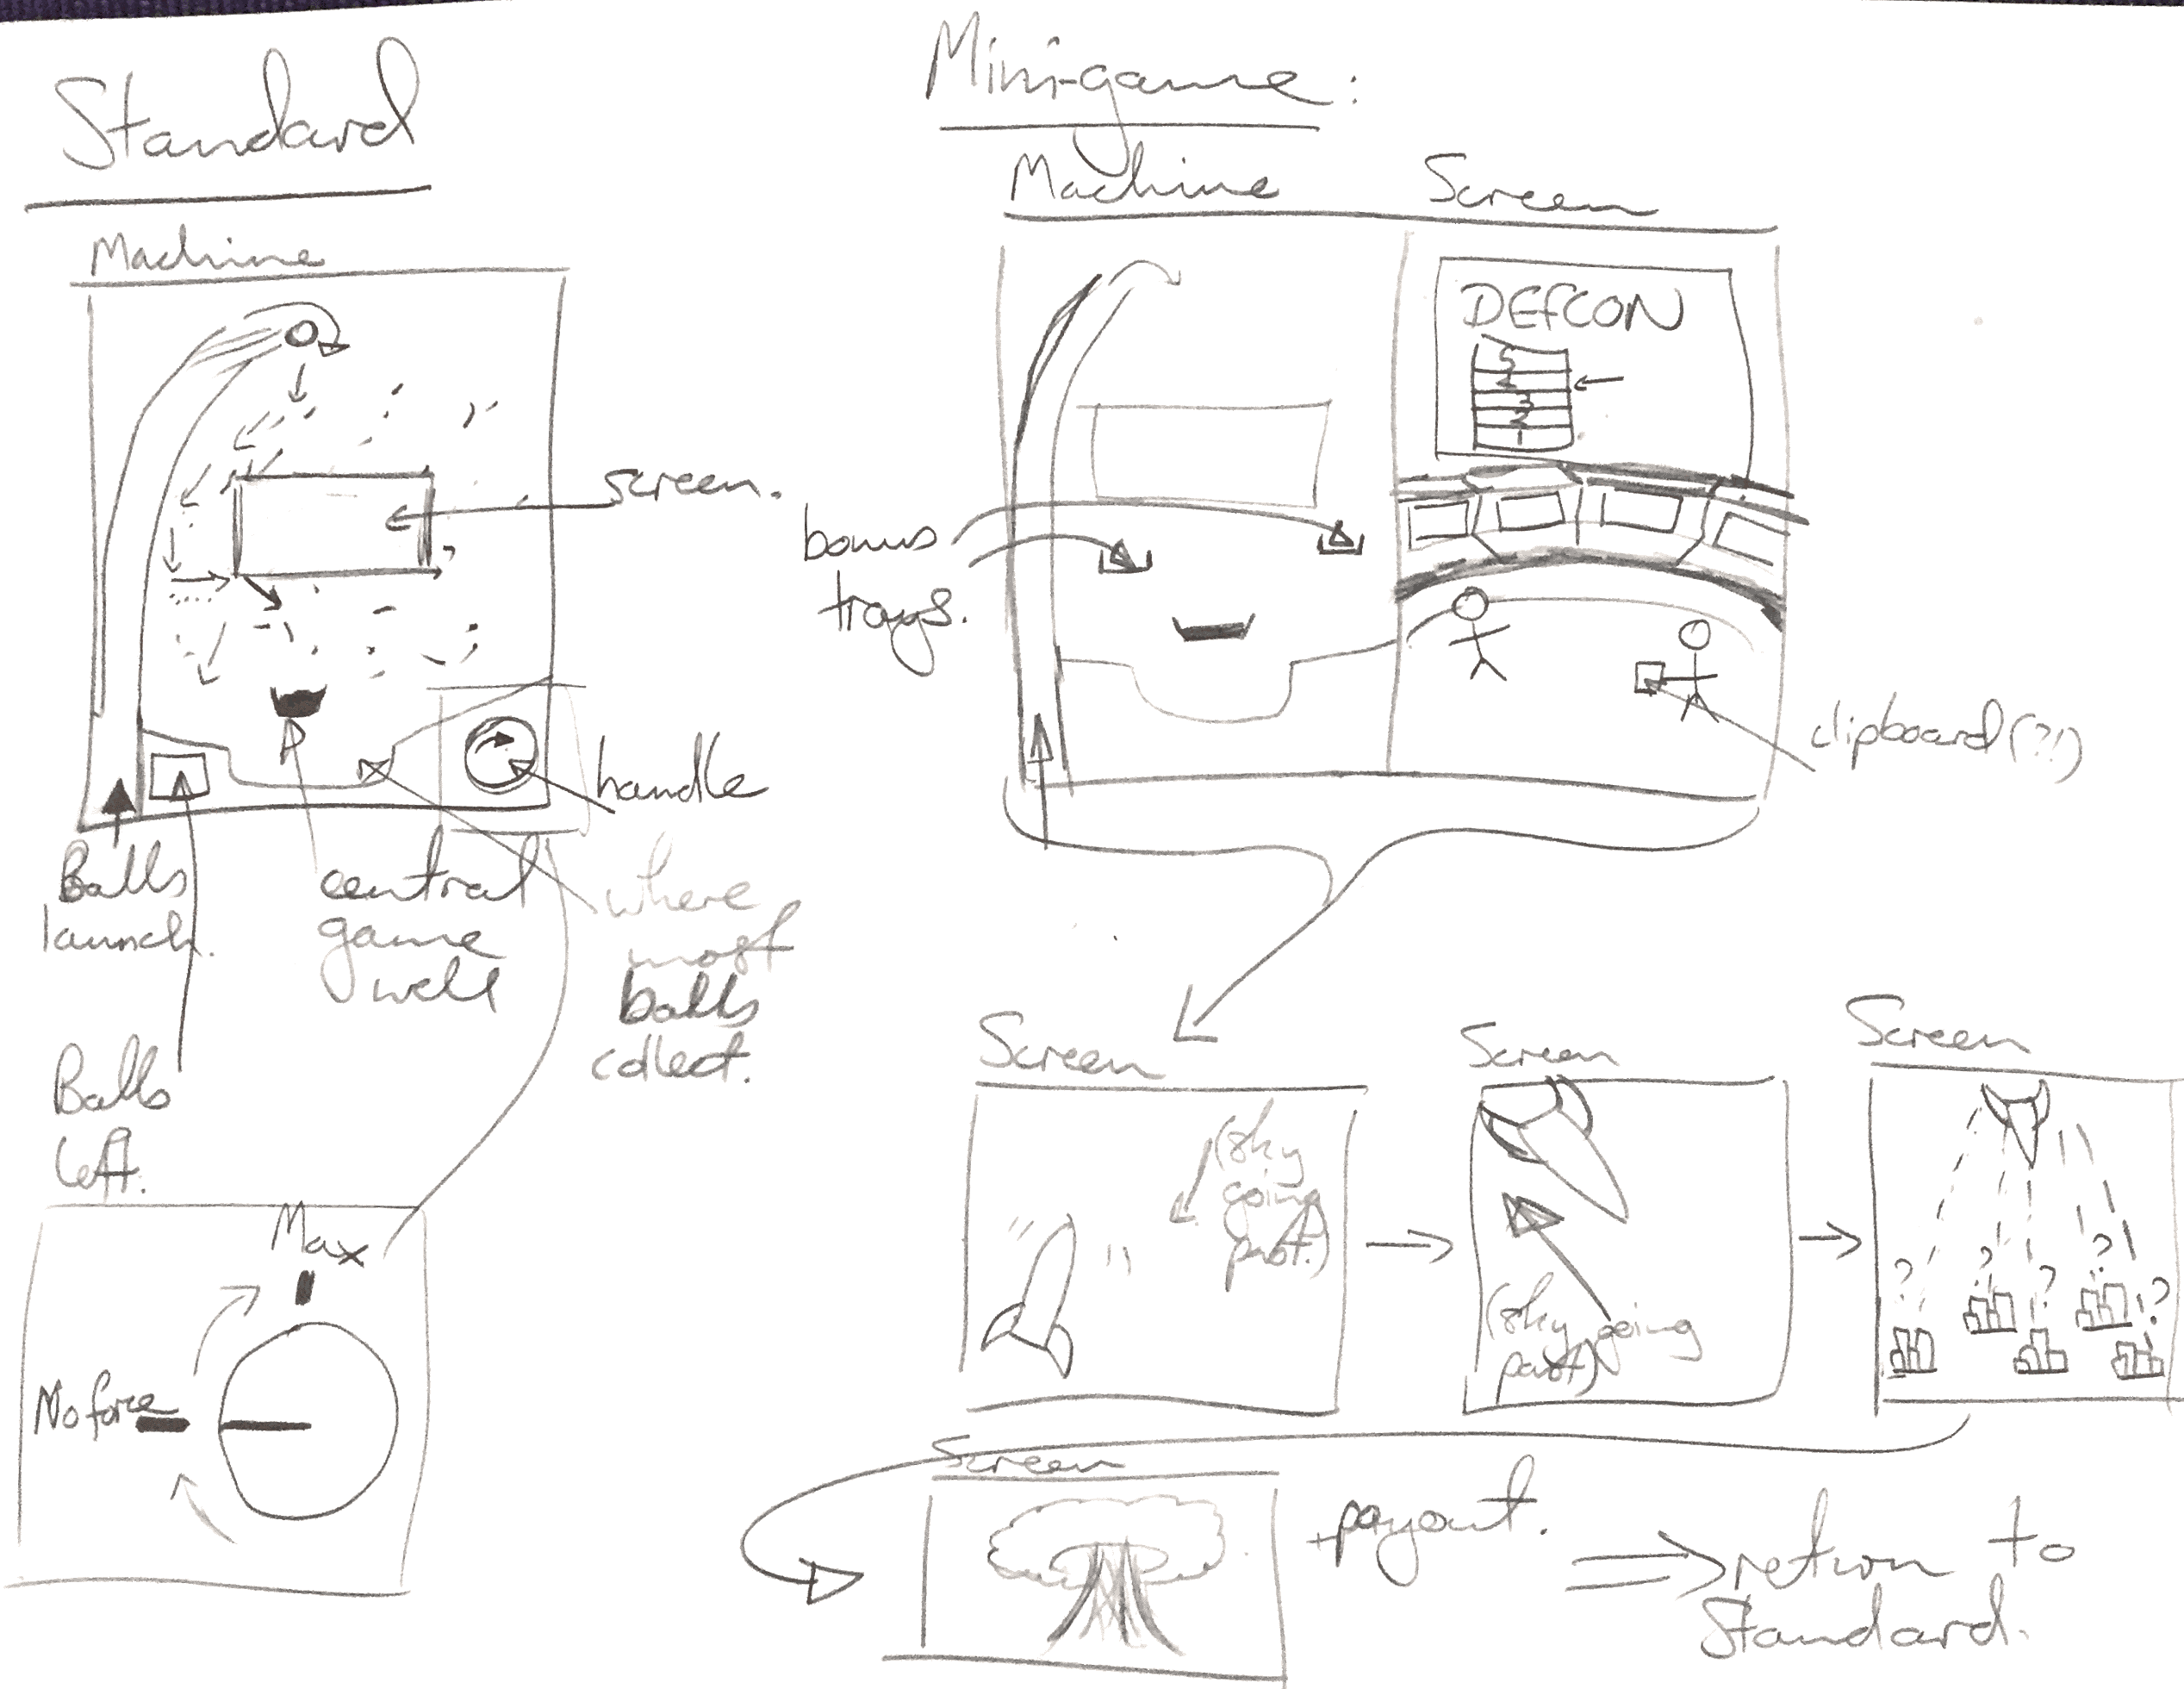 Standard
Machine
screen.
handle
Balls
launch.
central
game
well
where
most
balls
collect.
Balls
left.
Max
No force
Mini-game:
Machine
Screen
DEFCON
5
4
3
2
1
bonus
trays.
clipboard (?!)
Screen
(sky
going
past.)
Screen
(sky going
past)
Screen
?
?
?
?
?
Screen
+payout.
return to
Standard.